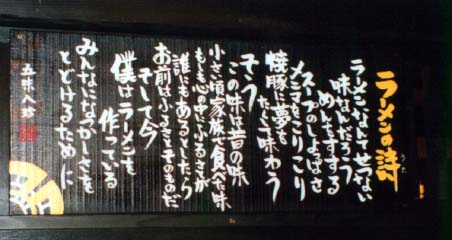 ラーメンの詩
うた
ラーメンなんてせつない
味なんだろう
めんをすすする
スープのしょっぱさ
メンマをこりこり
焼豚に夢を
たくして味わう
そう
この味は昔の味
小さい頃家族で食べた味
もしも心の中にふるさとが
誰にもあるとしたら
お前はふるさとそのものだ
そして今
僕はラーメンを
作っている
みんなになつかしさを
とどけるために
五味八珍